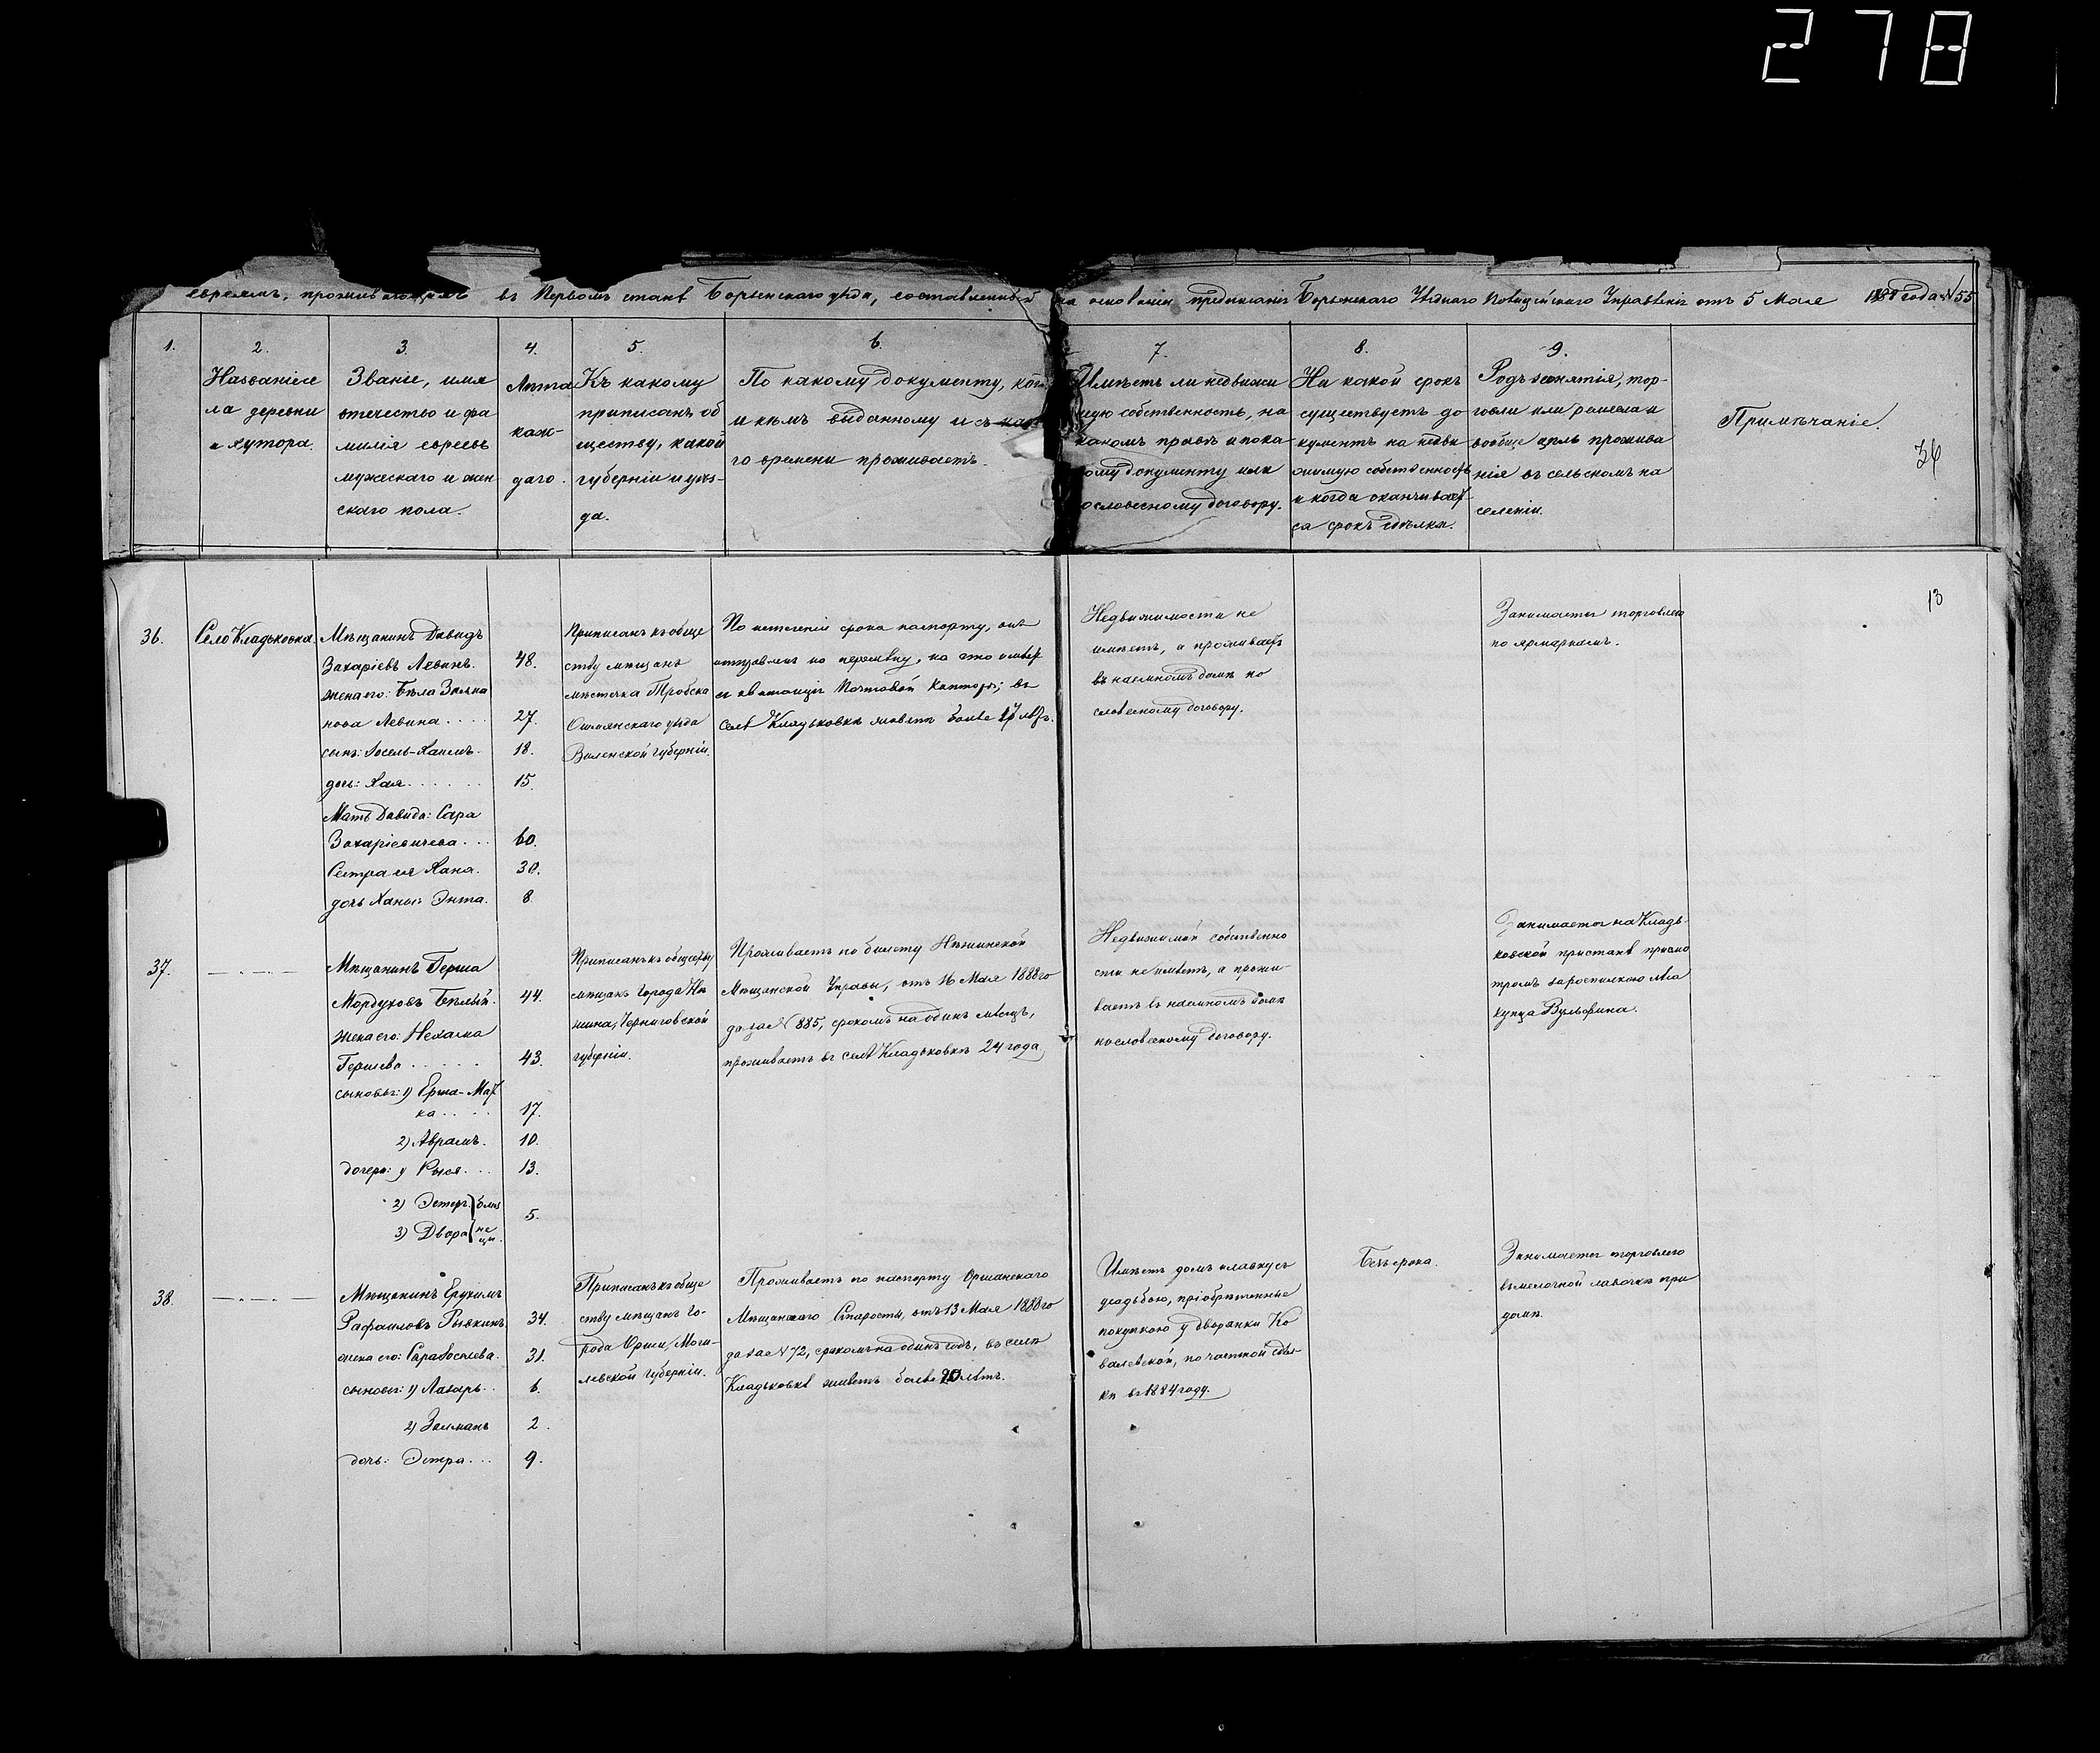 278
евреямъ, проживающимъ въ Первомъ станѣ Борзенскаго уѣзда, составленный на основаніи предписанія Борзенскаго Уѣзднаго Полицейскаго Управленія отъ 5 Мая 1888 года № 55
1.
2.
Названіе се
ла деревни
и хутора.
3.
Званіе, имя
отчество и фа
милія евреевъ
мужескаго и жен
скаго пола.
4.
Лѣта
каж-
даго.
5.
Къ какому
приписанъ об
ществу, какой
губерніи и уѣз-
да.
6.
По какому документу, ког
и кѣмъ выданному и съ как
го времени проживаетъ.
7.
Имѣетъ ли недвижи
мую собственность, на
какомъ правѣ и пока
кому документу или
пословесному договору.
8.
На какой срокъ
существуетъ до
кументъ на недви
жимую собственность
и когда оканчивает
ся срокъ сдѣлки.
9.
Родъ занятія, тор-
говли или ремесла и
вообще цѣль прожива
нія въ сельскомъ на
селеніи.
Примѣчаніе.
36
13
36.
Село Кладьковка.
Мѣщанинъ Давидъ
Захаріевъ Левинъ.
48.
жена его: Бѣла Залма
нова Левина . . . .
27.
сынъ: Іосель-Хаимъ.
18.
дочь: Хая . . . . . .
15.
Мать Давида: Сара
Захаріевичева . . .
60.
Сестра ея Хана.
30.
дочь Ханы: Энта.
8.
Приписанъ къ обще
ству мѣщанъ
мѣстечка Тробска
Ошмянскаго уѣзда
Виленской губерніи.
По истеченіи срока паспорту, онъ
отправленъ на перемѣну, на что имѣет
ся квитанція Почтовой Конторы; въ
селѣ Кладьковкѣ живетъ болѣе 17 лѣтъ.
Недвижимости не
имѣетъ, а проживаетъ
въ наемномъ домѣ по
словесному договору.
Занимается торговлею
по ярмаркамъ.
37.
Мѣщанинъ Герша
Мордуховъ Бѣлый.
44.
жена его: Нехама
Гершева . . . . .
43.
сыновья: 1) Ерша-Мат
ка . . . .
17.
2) Аврамъ.
10.
дочери: 1) Рыся . . .
13.
2) Эстеръ } близ
3) Двора } не
цы.
5.
Приписанъ къ обществу
мѣщанъ города Нѣ
жина, Черниговской
губерніи.
Проживаетъ по билету Нѣжинской
Мѣщанской Управы, отъ 16 Мая 1888 го
да за № 885, срокомъ на одинъ мѣсяцъ,
проживаетъ въ селѣ Кладьковкѣ 24 года.
Недвижимой собственно
сти не имѣетъ, а прожи-
ваетъ въ наемномъ домѣ
пословесному договору.
Занимается на Кладь-
ковской пристанѣ присмо
тромъ за роспилкою лѣса
купца Вульфина.
38.
Мѣщанинъ Ерухимъ
Рафаиловъ Рывкинъ
34.
жена его: Сара Іоселева.
31.
сыновья: 1) Лазарь . .
6.
2) Залманъ
2.
дочь: Эстра . . .
9.
Приписанъ къ обще
ству мѣщанъ го-
рода Орши, Моги-
левской губерніи.
Проживаетъ по паспорту Оршанскаго
Мѣщанскаго Старосты, отъ 13 Мая 1888 го
да за № 72, срокомъ на одинъ годъ, въ селѣ
Кладьковкѣ живетъ болѣе 20 лѣтъ.
Имѣетъ домъ и лавку съ
усадьбою, пріобрѣтенные
покупкою у дворянки Ко
валевской, по частной сдѣл-
кѣ въ 1884 году.
Безъ срока.
Занимается торговлею
въ мелочной лавочкѣ при
домѣ.